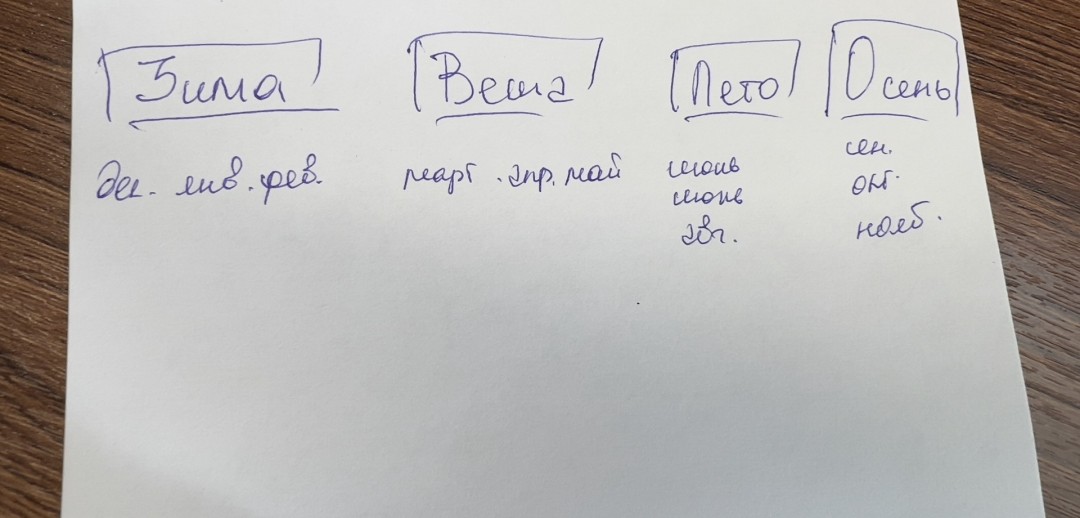 Зима Весна Лето Осень
дек. янв. фев. март. апр. май
июнь
июль
авг.
сен.
окт.
нояб.